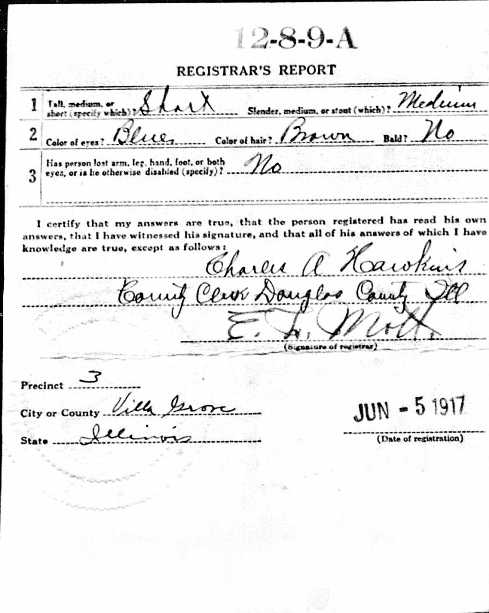 12-8-9-A
REGISTRAR'S REPORT
1 Tall, medium, or short (specify which)? Short Slender, medium, or stout (which)? Medium
2 Color of eyes? Blue Color of hair? Brown Bald? No
3 Has person lost arm, leg, hand, foot, or both eyes, or is he otherwise disabled (specify)? No
I certify that my answers are true, that the person registered has read his own
answers, that I have witnessed his signature, and that all of his answers of which I have
knowledge are true, except as follows:
Charles A Hawkins
County Clerk Douglas County Ill
E. L. Mott.
(Signature of registrar)
Precinct 3
City or County Villa Grove
State Illinois
JUN - 5 1917
(Date of registration)